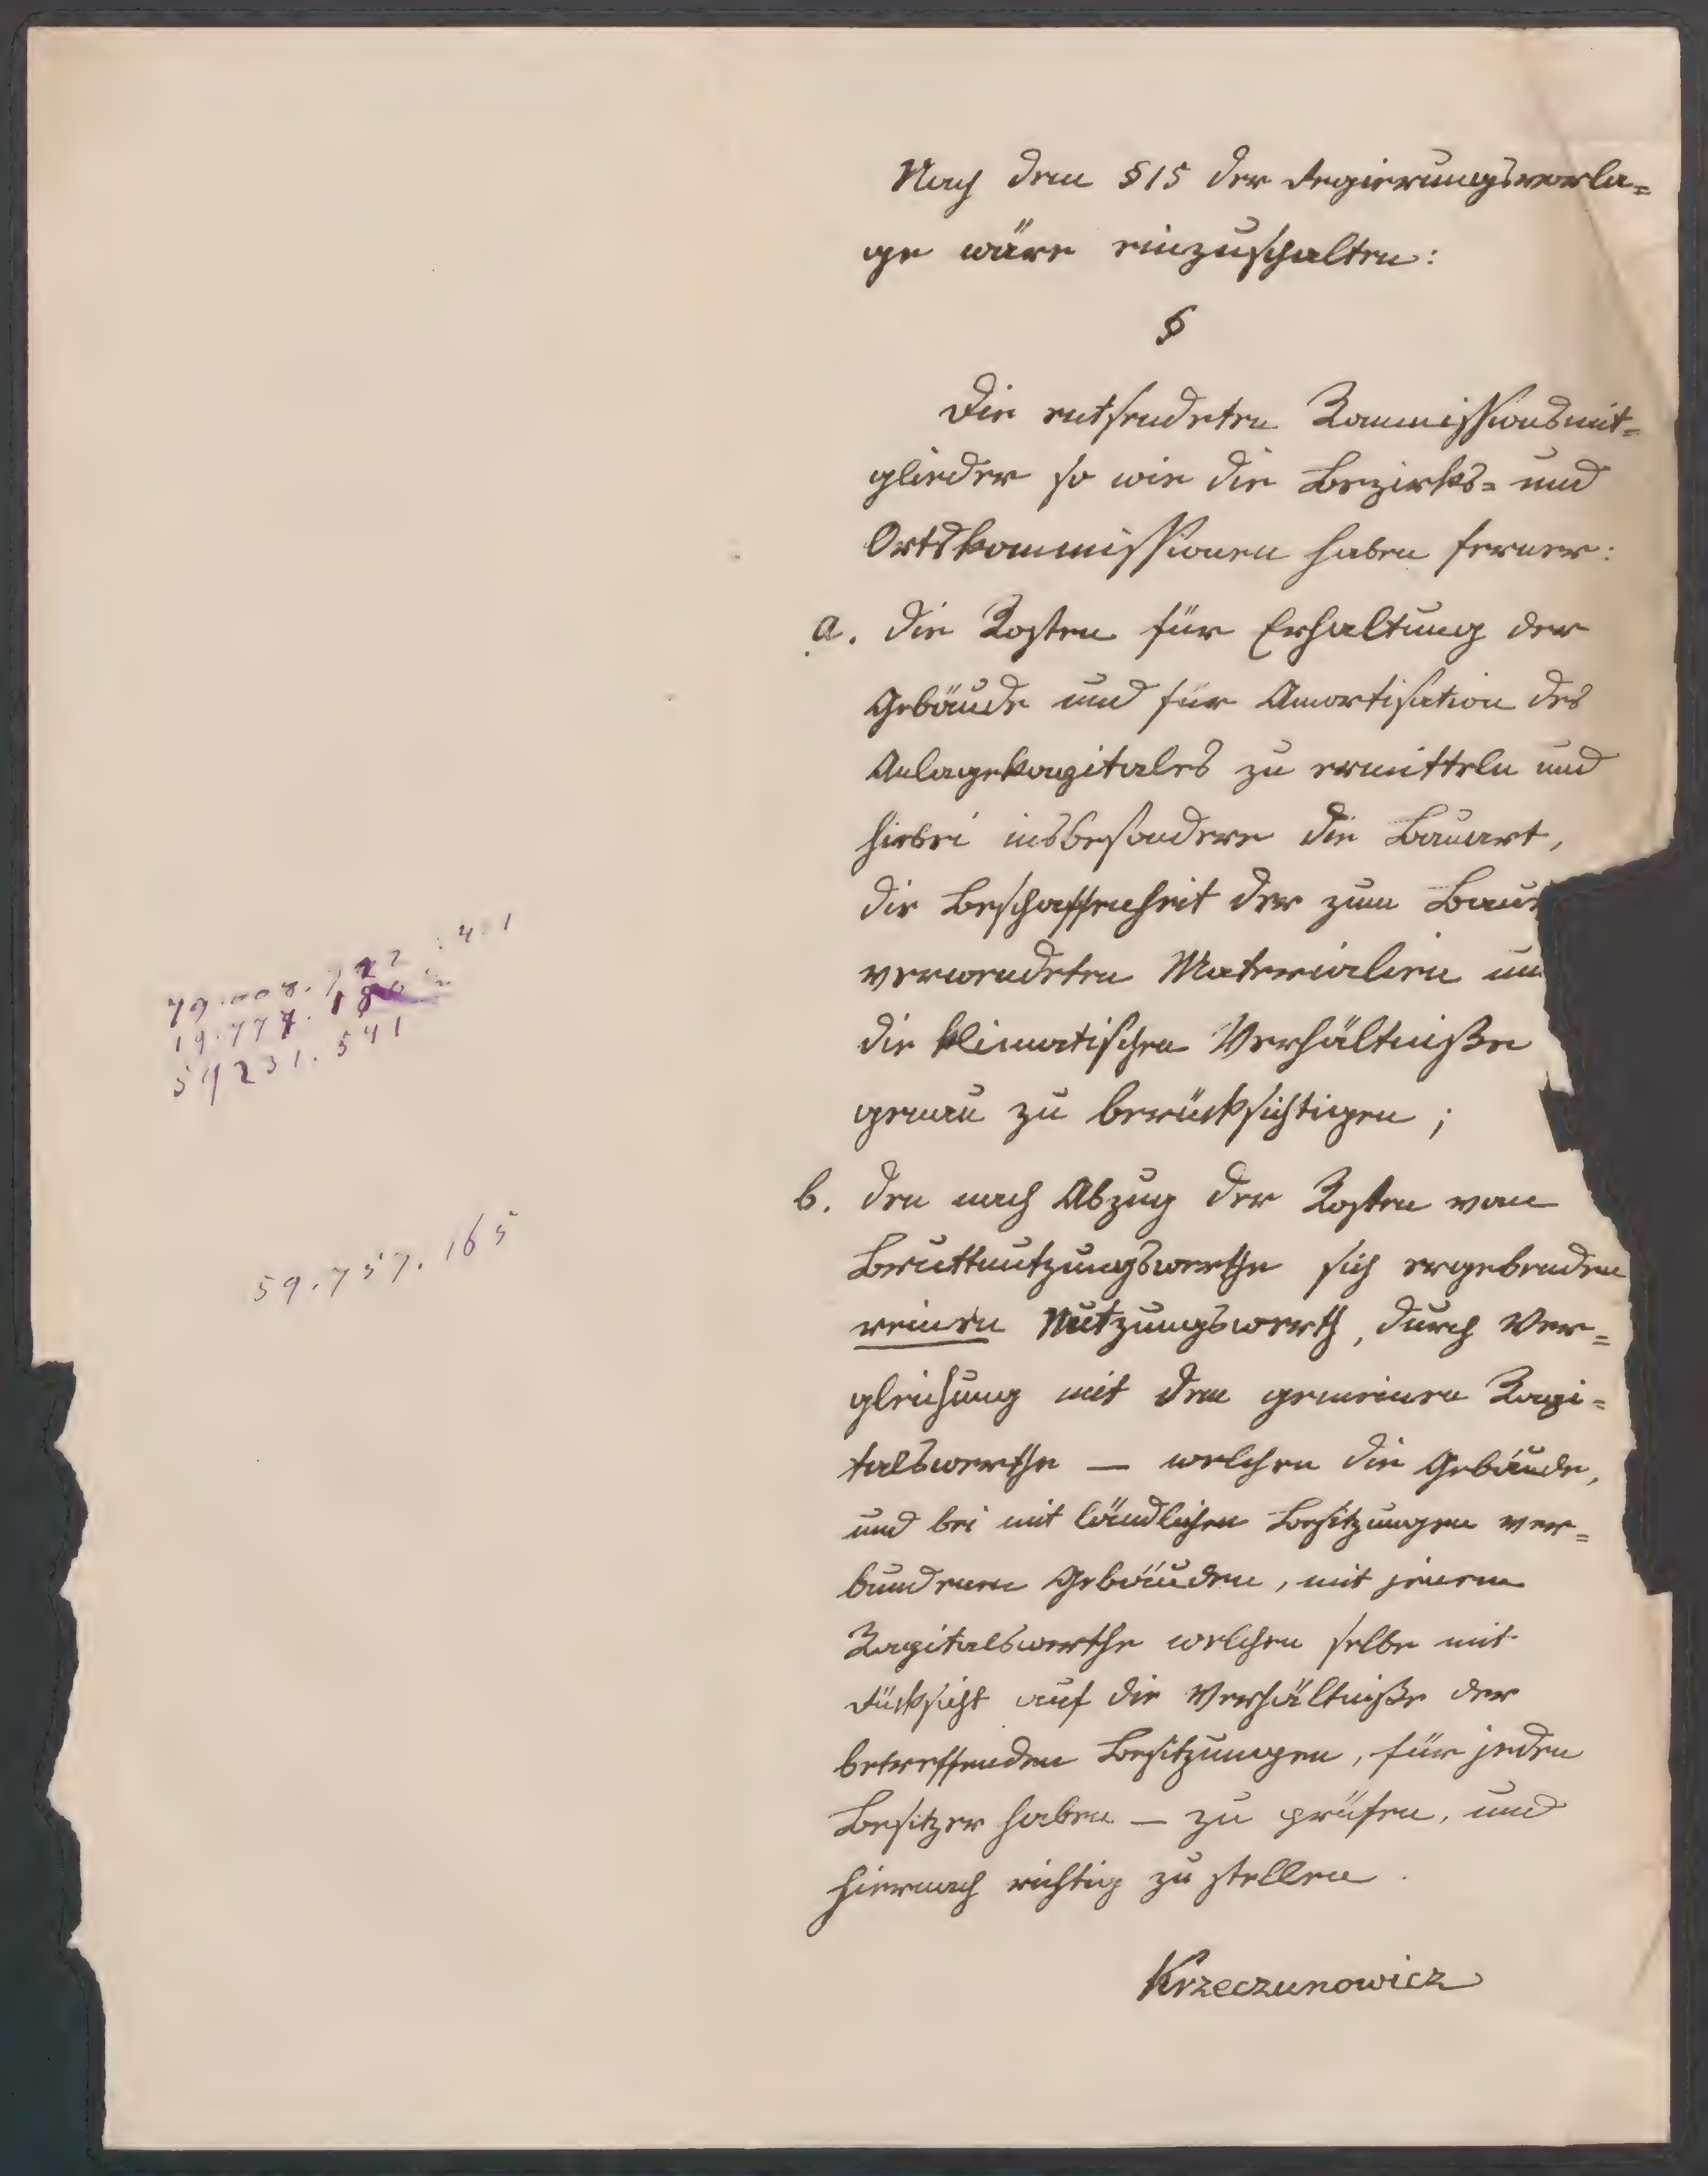 Nach dem § 15 der Regierungsvorla=
ge wäre einzuschalten:
§
Die entsendeten Kommissionsmit=
glieder so wie die Bezirks= und
Ortskommissionen haben ferner:
a. die Kosten für Erhaltung der
Gebäude und für Amortisation des
Anlagekapitales zu ermitteln und
hiebei insbesondere die Bauart,
die Beschaffenheit der zum Baue
verwendeten Materialien un
die klimatischen Verhältniße
genau zu berücksichtigen;
b. den nach Abzug der Kosten vom
Bruttnutzungswerthe sich ergebenden
reinen Nutzungswerth, durch Ver=
gleichung mit dem gemeinen Kapi=
talswerthe — welchen die Gebäude,
und bei mit ländlichen Besitzungen ver=
bundenen Gebäuden, mit jenem
Kapitalswerthe welchen selbe mit
Rücksicht auf die Verhältniße der
betreffenden Besitzungen, für jeden
Besitzer haben — zu prüfen, und
hiernach richtig zu stellen.
Krzeczunowicz
59231.541
59.757.165